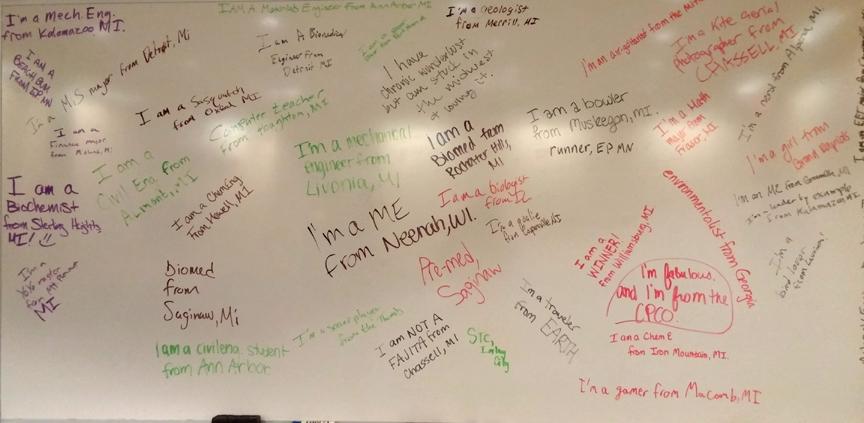 I'm a Mech. Eng.
from Kalamazoo MI.
I AM A Materials Engineer From Ann Arbor MI
I'm a geologist
from Merrill, MI
I'm a Kite aerial
photographer from
CHASSELL, MI
I AM A
BEACH BUM
FROM EP MN
I'm a MIS major from Detroit, Mi
I am A Biomedical
Engineer From
Detroit MI
I have
chronic wanderlust
but am stuck in
the midwest
& loving it.
I am a Sasquatch
from Oxford MI
Computer teacher
from Houghton, MI
I am a
Finance major
from
I am a
Civil Eng. from
Almont, MI
I'm a mechanical
engineer from
Livonia, MI
I am a
Biomed from
Rochester Hills,
MI
I am a bowler
from Muskegon, MI.
runner, EP MN
I'm a Math
major from
Fraser, MI
I'm a girl from
Grand Rapids
I am a
Biochemist
from Sterling Heights
MI!
I am a ChemEng
From Howell, MI
I'm a ME
From Neenah, WI.
I am a biologist
from IL
I'm a goalie
from
I am a
WINNER!
from Williamsburg, MI
environmentalist from Georgia
I'm a
from
MI
Biomed
from
Saginaw, Mi
Pre-med,
Saginaw
I'm a
I'm fabulous.
and I'm from the
CPCO.
I am a civil eng. student
from Ann Arbor
I'm a soccer player
from the Thumb
I am NOT A
FAJITA from
Chassell, MI
STC,
I'm a traveler
from EARTH
I am a Chem E
from Iron Mountain, MI.
I'm a gamer from Macomb, MI